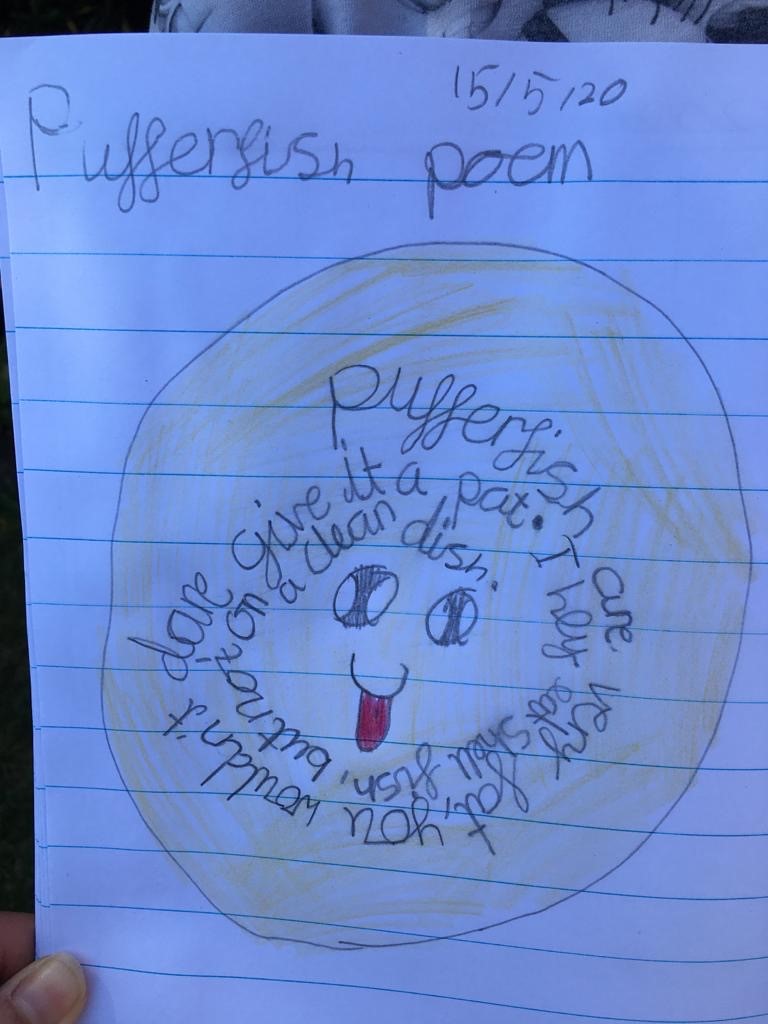 15/5/20
Pufferfish poem
pufferfish are very fat, you wouldn't dare give it a pat. They eat shell fish, but not on a clean dish.